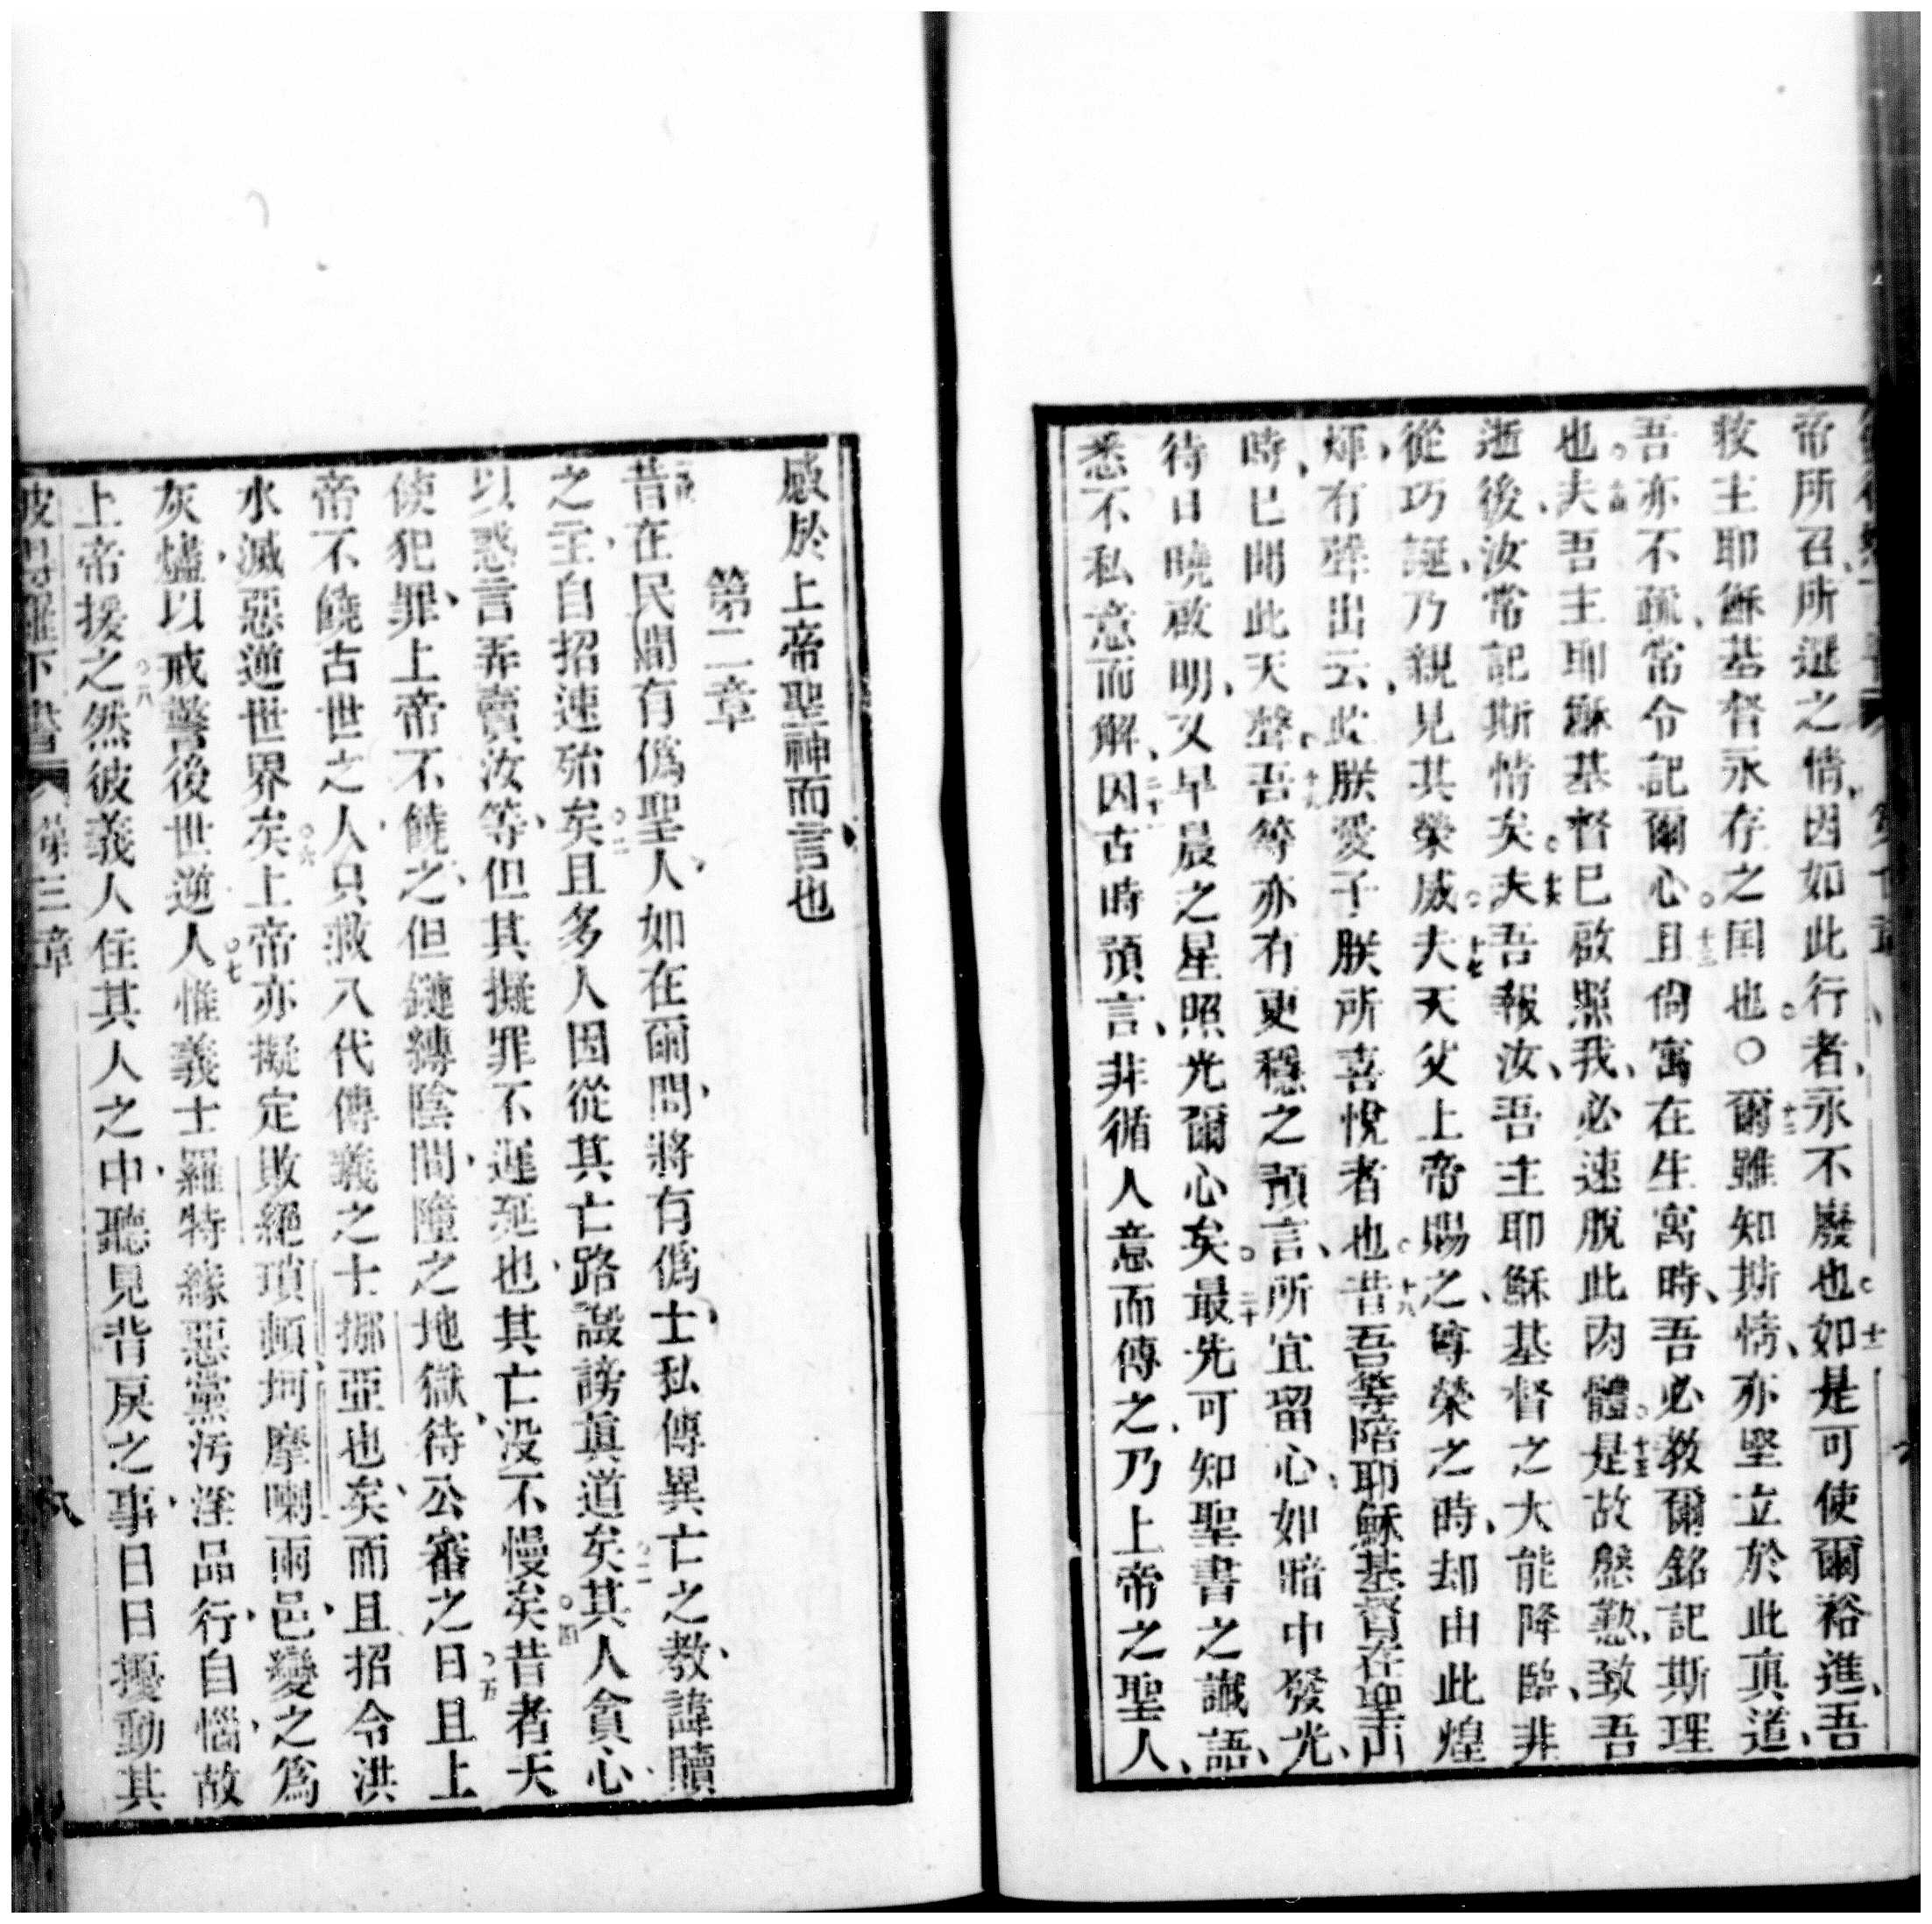 帝所召、所選之情、因如此行者、永不廢也。十一如是可使爾裕進、吾
救主耶穌基督永存之国也。○十二爾雖知斯情、亦堅立於此真道、
吾亦不疏、常令記爾心。十三且倘寓在生寓時、吾必教爾銘記斯理
也。十四夫吾主耶穌基督已啟照我、必速脫此肉體。十五是故慇懃、致吾
逝後、汝常記斯情矣。十六夫吾報汝、吾主耶穌基督之大能降臨、非
從巧誕、乃親見其榮威。十七夫天父上帝賜之、尊榮之時、却由此煌
煇、有聲出云、此朕愛子、朕所喜悅者也。十八昔吾等陪耶穌基督在聖山
時、已聞此天聲。十九吾等亦有更穩之預言、所宜留心、如暗中發光、
待日曉啟明、又早晨之星照光爾心矣。二十最先可知聖書之讖語、
悉不私意而解、二十一因古時預言、非循人意而傳之、乃上帝之聖人、
感於上帝聖神而言也、
第二章
昔在民間有偽聖人、如在爾間、將有偽士、私傳異亡之教、諱贖
之主、自招速殆矣。二且多人因從其亡路、譭謗真道矣。三其人貪心、
以惑言弄賣汝等、但其擬罪不遲延也、其亡没不慢矣。四昔者天
使犯罪、上帝不饒之、但鏈縛陰間、墮之地獄、待公審之日、五且上
帝不饒古世之人、只救八代傳義之士挪亞也矣、而且招令洪
水滅惡逆世界矣。六上帝亦擬定敗絕瑣頓、坷摩喇兩邑、變之為
灰燼、以戒警後世逆人。七惟義士羅特緣惡黨汚淫品行、自惱、故
上帝援之、八然彼義人住其人之中、聽見背戾之事、日日擾動其
彼得羅下書 第三章 八